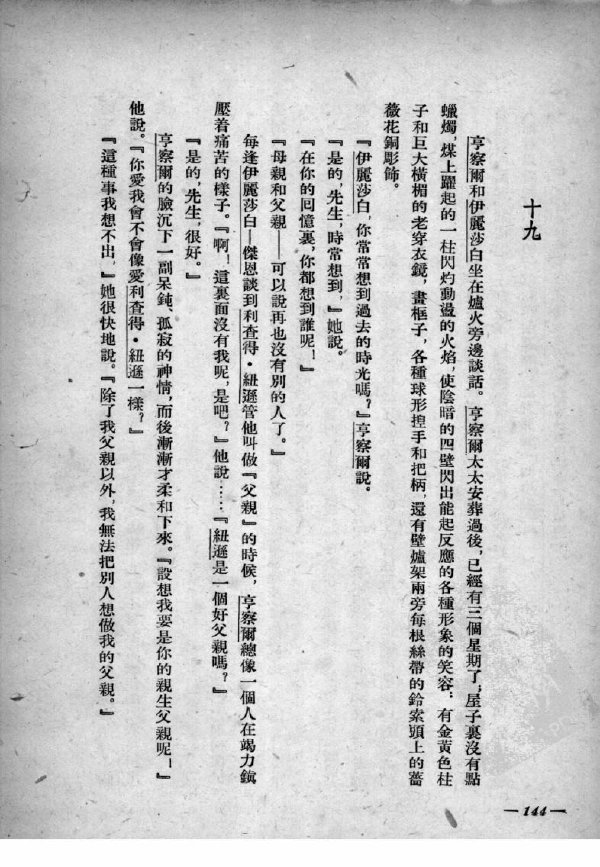 十九
亨察爾和伊麗莎白坐在爐火旁邊談話。亨察爾太太安葬過後，已經有三個星期了；屋子裏沒有點
蠟燭，煤上躍起的一柱閃灼動盪的火焰，使陰暗的四壁閃出能起反應的各種形象的笑容：有金黃色柱
子和巨大橫楣的老穿衣鏡，畫框子，各種球形揑手和把柄，還有壁爐架兩旁每根絲帶的鈴索頭上的薔
薇花銅彫飾。
『伊麗莎白，你常常想到過去的時光嗎？』亨察爾說。
『是的，先生，時常想到，』她說。
『在你的回憶裏，你都想到誰呢！』
『母親和父親——可以說再也沒有別的人了。』
每逢伊麗莎白—傑恩談到利查得·紐遜管他叫做『父親』的時候，亨察爾總像一個人在竭力鎮
壓着痛苦的樣子。『啊！這裏面沒有我呢，是吧？』他說……『紐遜是一個好父親嗎？』
『是的，先生，很好。』
亨察爾的臉沉下一副呆鈍、孤寂的神情，而後漸漸才柔和下來。『設想我要是你的親生父親呢！』
他說。『你愛我會不會像愛利查得·紐遜一樣？』
『這種事我想不出，』她很快地說。『除了我父親以外，我無法把別人想做我的父親。』
—144—